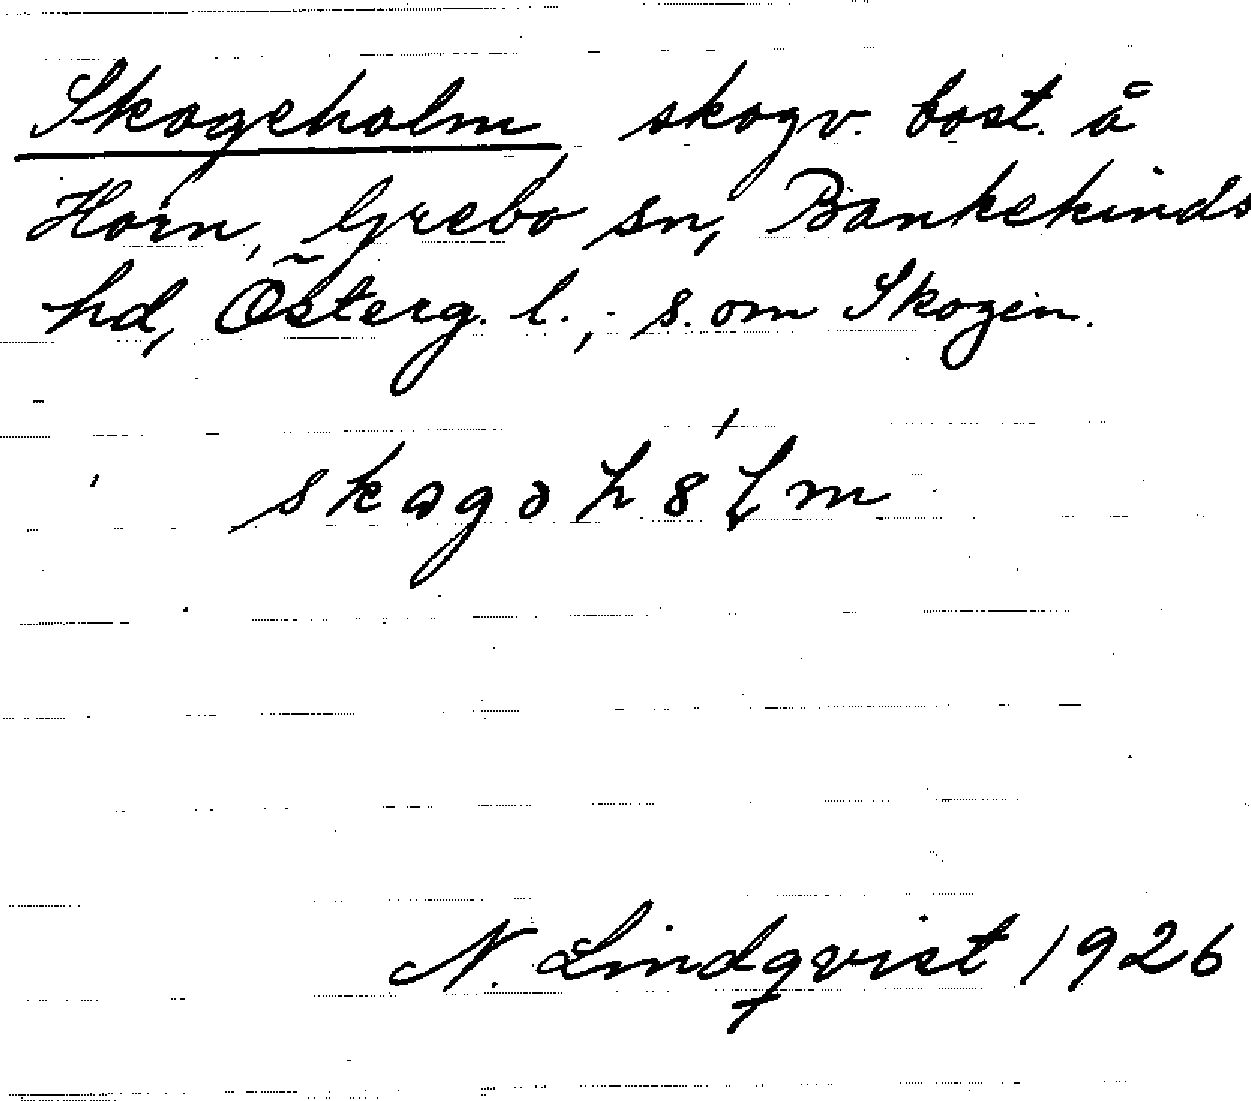 Skogeholm, skogv. bost. å
Horn, Grebo sn, Bankekinds
hd, Österg. l., s. om Skogen.
skogəh8́ɭm
N. Lindqvist 1926